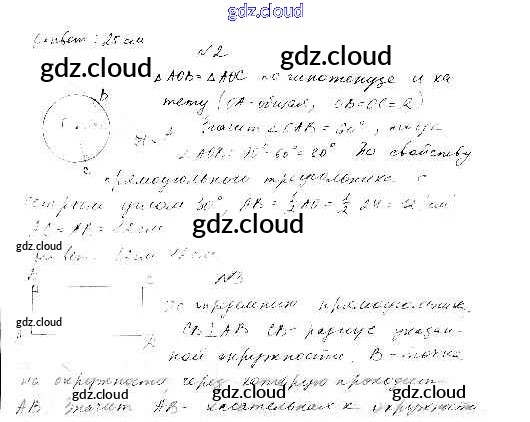 gdz.cloud
Ответ: 25 см
№2
gdz.cloud gdz.cloud
△AOB = △AOC по гипотенузе и ка-
B тету (OA - общая, OB = OC = R)
Значит ∠OAB = 60°, тогда
A
∠AOB = 90° - 60° = 30° По свойству
C
прямоугольного треугольника с
острым углом 30°, AB = ½ AO = ½ · 24 = 12 см
gdz.cloud gdz.cloud
AC = AB = 12 см
gdz.cloud
Ответ: 12 см
№3
По определению прямоугольника
gdz.cloud
CB ⊥ AB CB - радиус указан-
ной окружности. B - точка
на окружности через которую проходит
gdz.cloud gdz.cloud gdz.cloud
AB. Значит AB - касательная к окружности